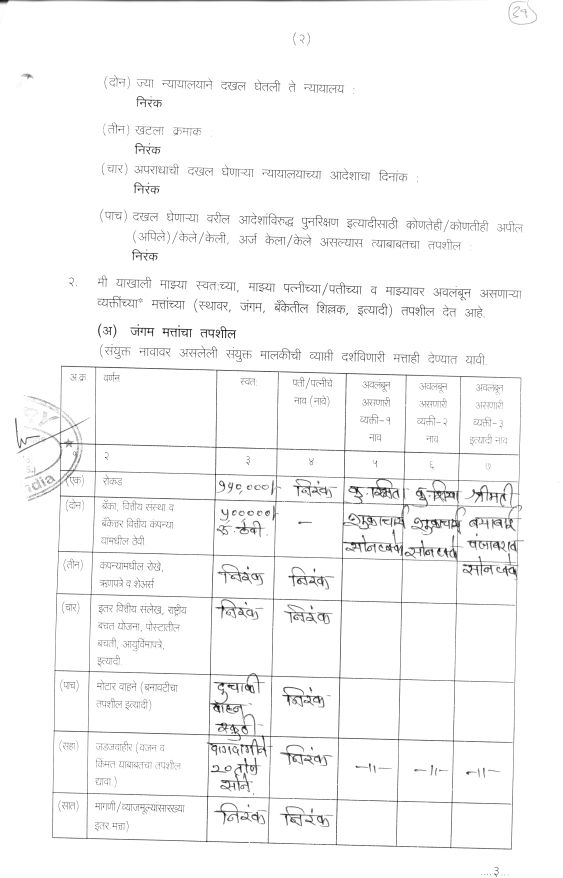 29
(२)
(दोन) ज्या न्यायालयाने दखल घेतली ते न्यायालय :
निरंक
(तीन) खटला क्रमाक :
निरंक
(चार) अपराधाची दखल घेणाऱ्या न्यायालयाच्या आदेशाचा दिनांक :
निरंक
(पाच) दखल घेणाऱ्या वरील आदेशांविरुद्ध पुनरिक्षण इत्यादीसाठी कोणतेही/कोणतीही अपील
(अपिले)/केले/केली, अर्ज केला/केले असल्यास त्याबाबतचा तपशील :
निरंक
२. मी याखाली माझ्या स्वतःच्या, माझ्या पत्नीच्या/पतीच्या व माझ्यावर अवलंबून असणाऱ्या
व्यक्तींच्या* मत्तांच्या (स्थावर, जंगम, बँकेतील शिल्लक, इत्यादी) तपशील देत आहे.
(अ) जंगम मत्तांचा तपशील
(संयुक्त नावावर असलेली संयुक्त मालकीची व्याप्ती दर्शविणारी मत्ताही देण्यात यावी.
अ.क्र वर्णन स्वतः पती/पत्नीचे अवलबून अवलबून अवलबून
नाव (नावे) असणारी असणारी असणारी
व्यक्ती-१ व्यक्ती-२ व्यक्ती-३
नाव नाव इत्यादी नाव
१ २ ३ ४ ५ ६ ७
(एक) रोकड १५०,०००/- निरंक कु. कु. श्रीमती
(दोन) बँका, वित्तीय सस्था व ५०००००/- — शुक्राचार्य शुक्राचार्य
बँकेत्तर वित्तीय कंपन्या रु. ठेवी. सोनटक्के सोनटक्के पंजाबराव
यामधील ठेवी सोनटक्के
(तीन) कपन्यामधील रोखे, निरंक निरंक
ऋणपत्रे व शेअर्स
(चार) इतर वित्तीय सलेख, राष्ट्रीय निरंक निरंक
बचत योजना, पोस्टातील
बचती, आयुर्विमापत्रे,
इत्यादी.
(पाच) मोटार वाहने (बनावटीचा दुचाकी निरंक
तपशील इत्यादी) वाहन
स्कुटी
(सहा) जडजवाहीर (वजन व निरंक -॥- -॥- -॥-
किंमत याबाबतचा तपशील २० तोळे
द्यावा.) सोने.
(सात) मागणी/व्याजमूल्यासारख्या निरंक निरंक
इतर मत्ता)
....३...
dia